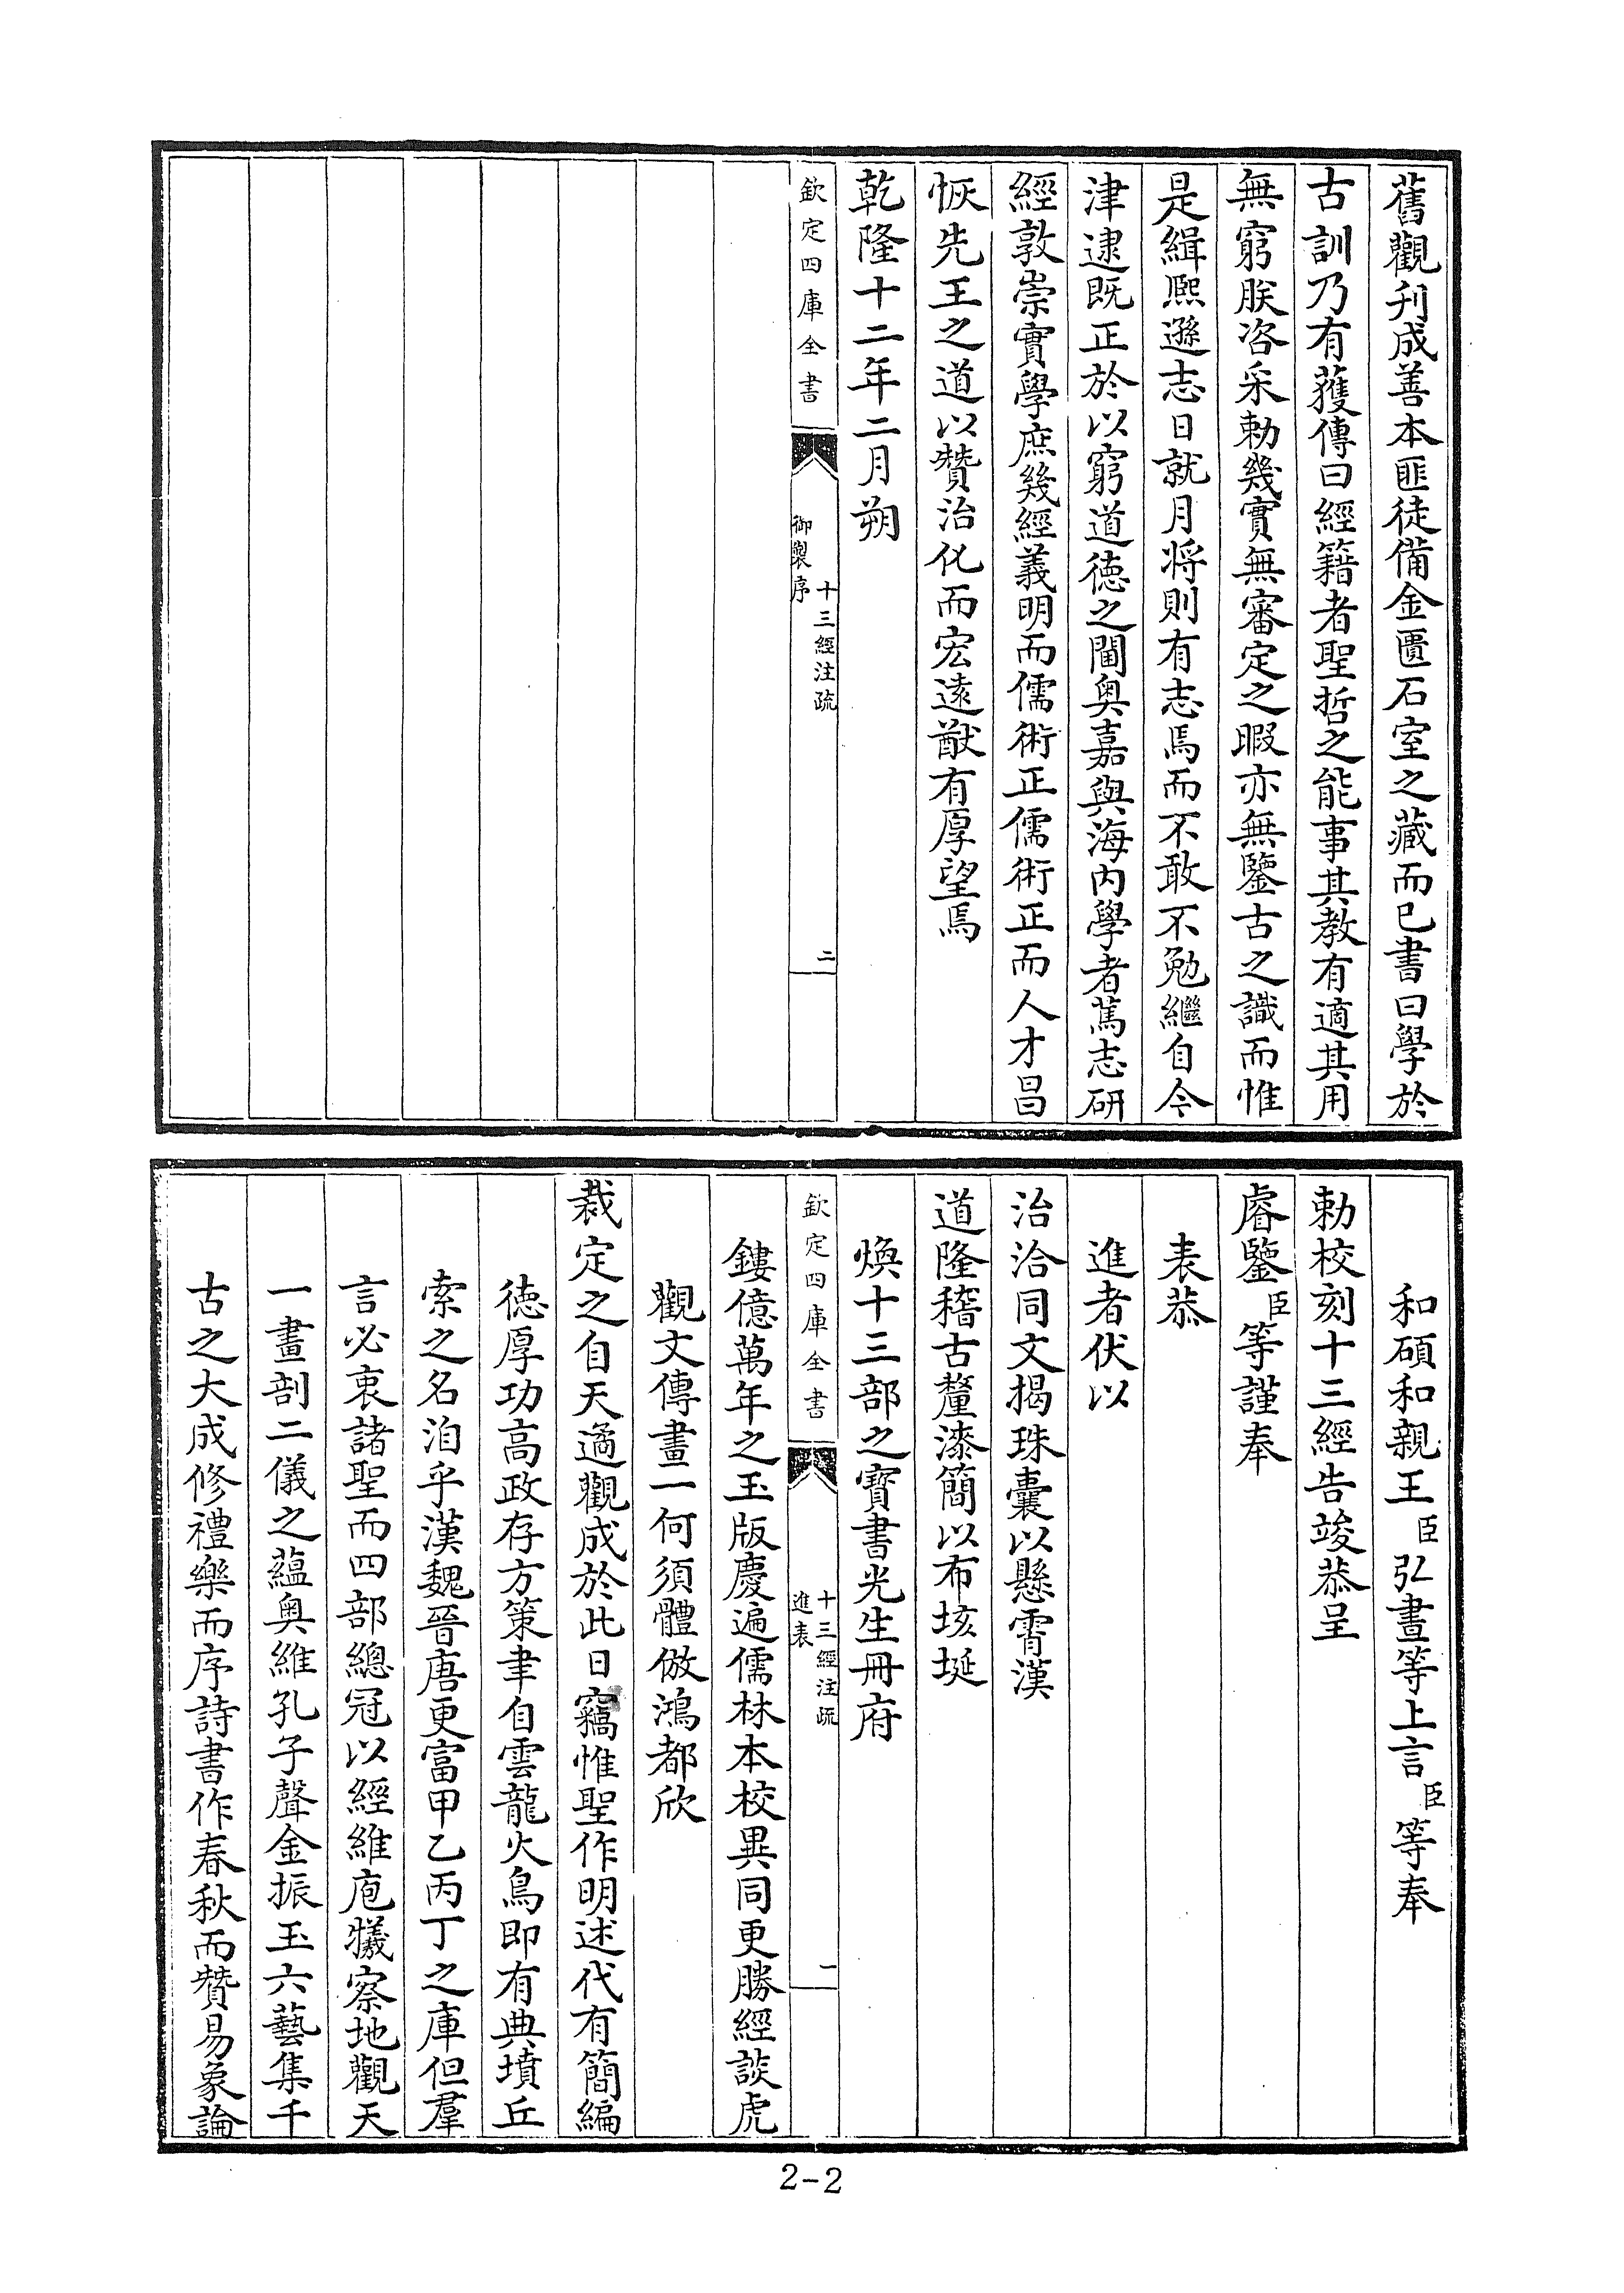 舊觀刋成善本匪徒備金匱石室之藏而已書曰學於
古訓乃有獲傳曰經籍者聖哲之能事其教有適其用
無窮朕咨采勅幾實無審定之暇亦無鑒古之識而惟
是緝熈遜志日就月將則有志焉而不敢不勉繼自今
津逮既正於以窮道徳之閫奥嘉與海内學者篤志研
經敦崇實學庶幾經義明而儒術正儒術正而人才昌
恢先王之道以贊治化而宏遠猷有厚望焉
乾隆十二年二月朔
欽定四庫全書
十三經注疏
御製序
二
和碩和親王臣弘晝等上言臣等奉
勅校刻十三經告竣恭呈
睿鑒臣等謹奉
表恭
進者伏以
治洽同文揭珠囊以懸霄漢
道隆稽古釐漆簡以布垓埏
煥十三部之寳書光生冊府
欽定四庫全書
十三經注疏
進表
一
鏤億萬年之玉版慶遍儒林本校異同更勝經談虎
觀文傳畫一何須體倣鴻都欣
裁定之自天適觀成於此日竊惟聖作明述代有簡編
徳厚功高政存方策聿自雲龍火鳥即有典墳丘
索之名洎乎漢魏晉唐更富甲乙丙丁之庫但羣
言必衷諸聖而四部總冠以經維庖犧察地觀天
一畫剖二儀之藴奥維孔子聲金振玉六藝集千
古之大成修禮樂而序詩書作春秋而贊易象論
2-2